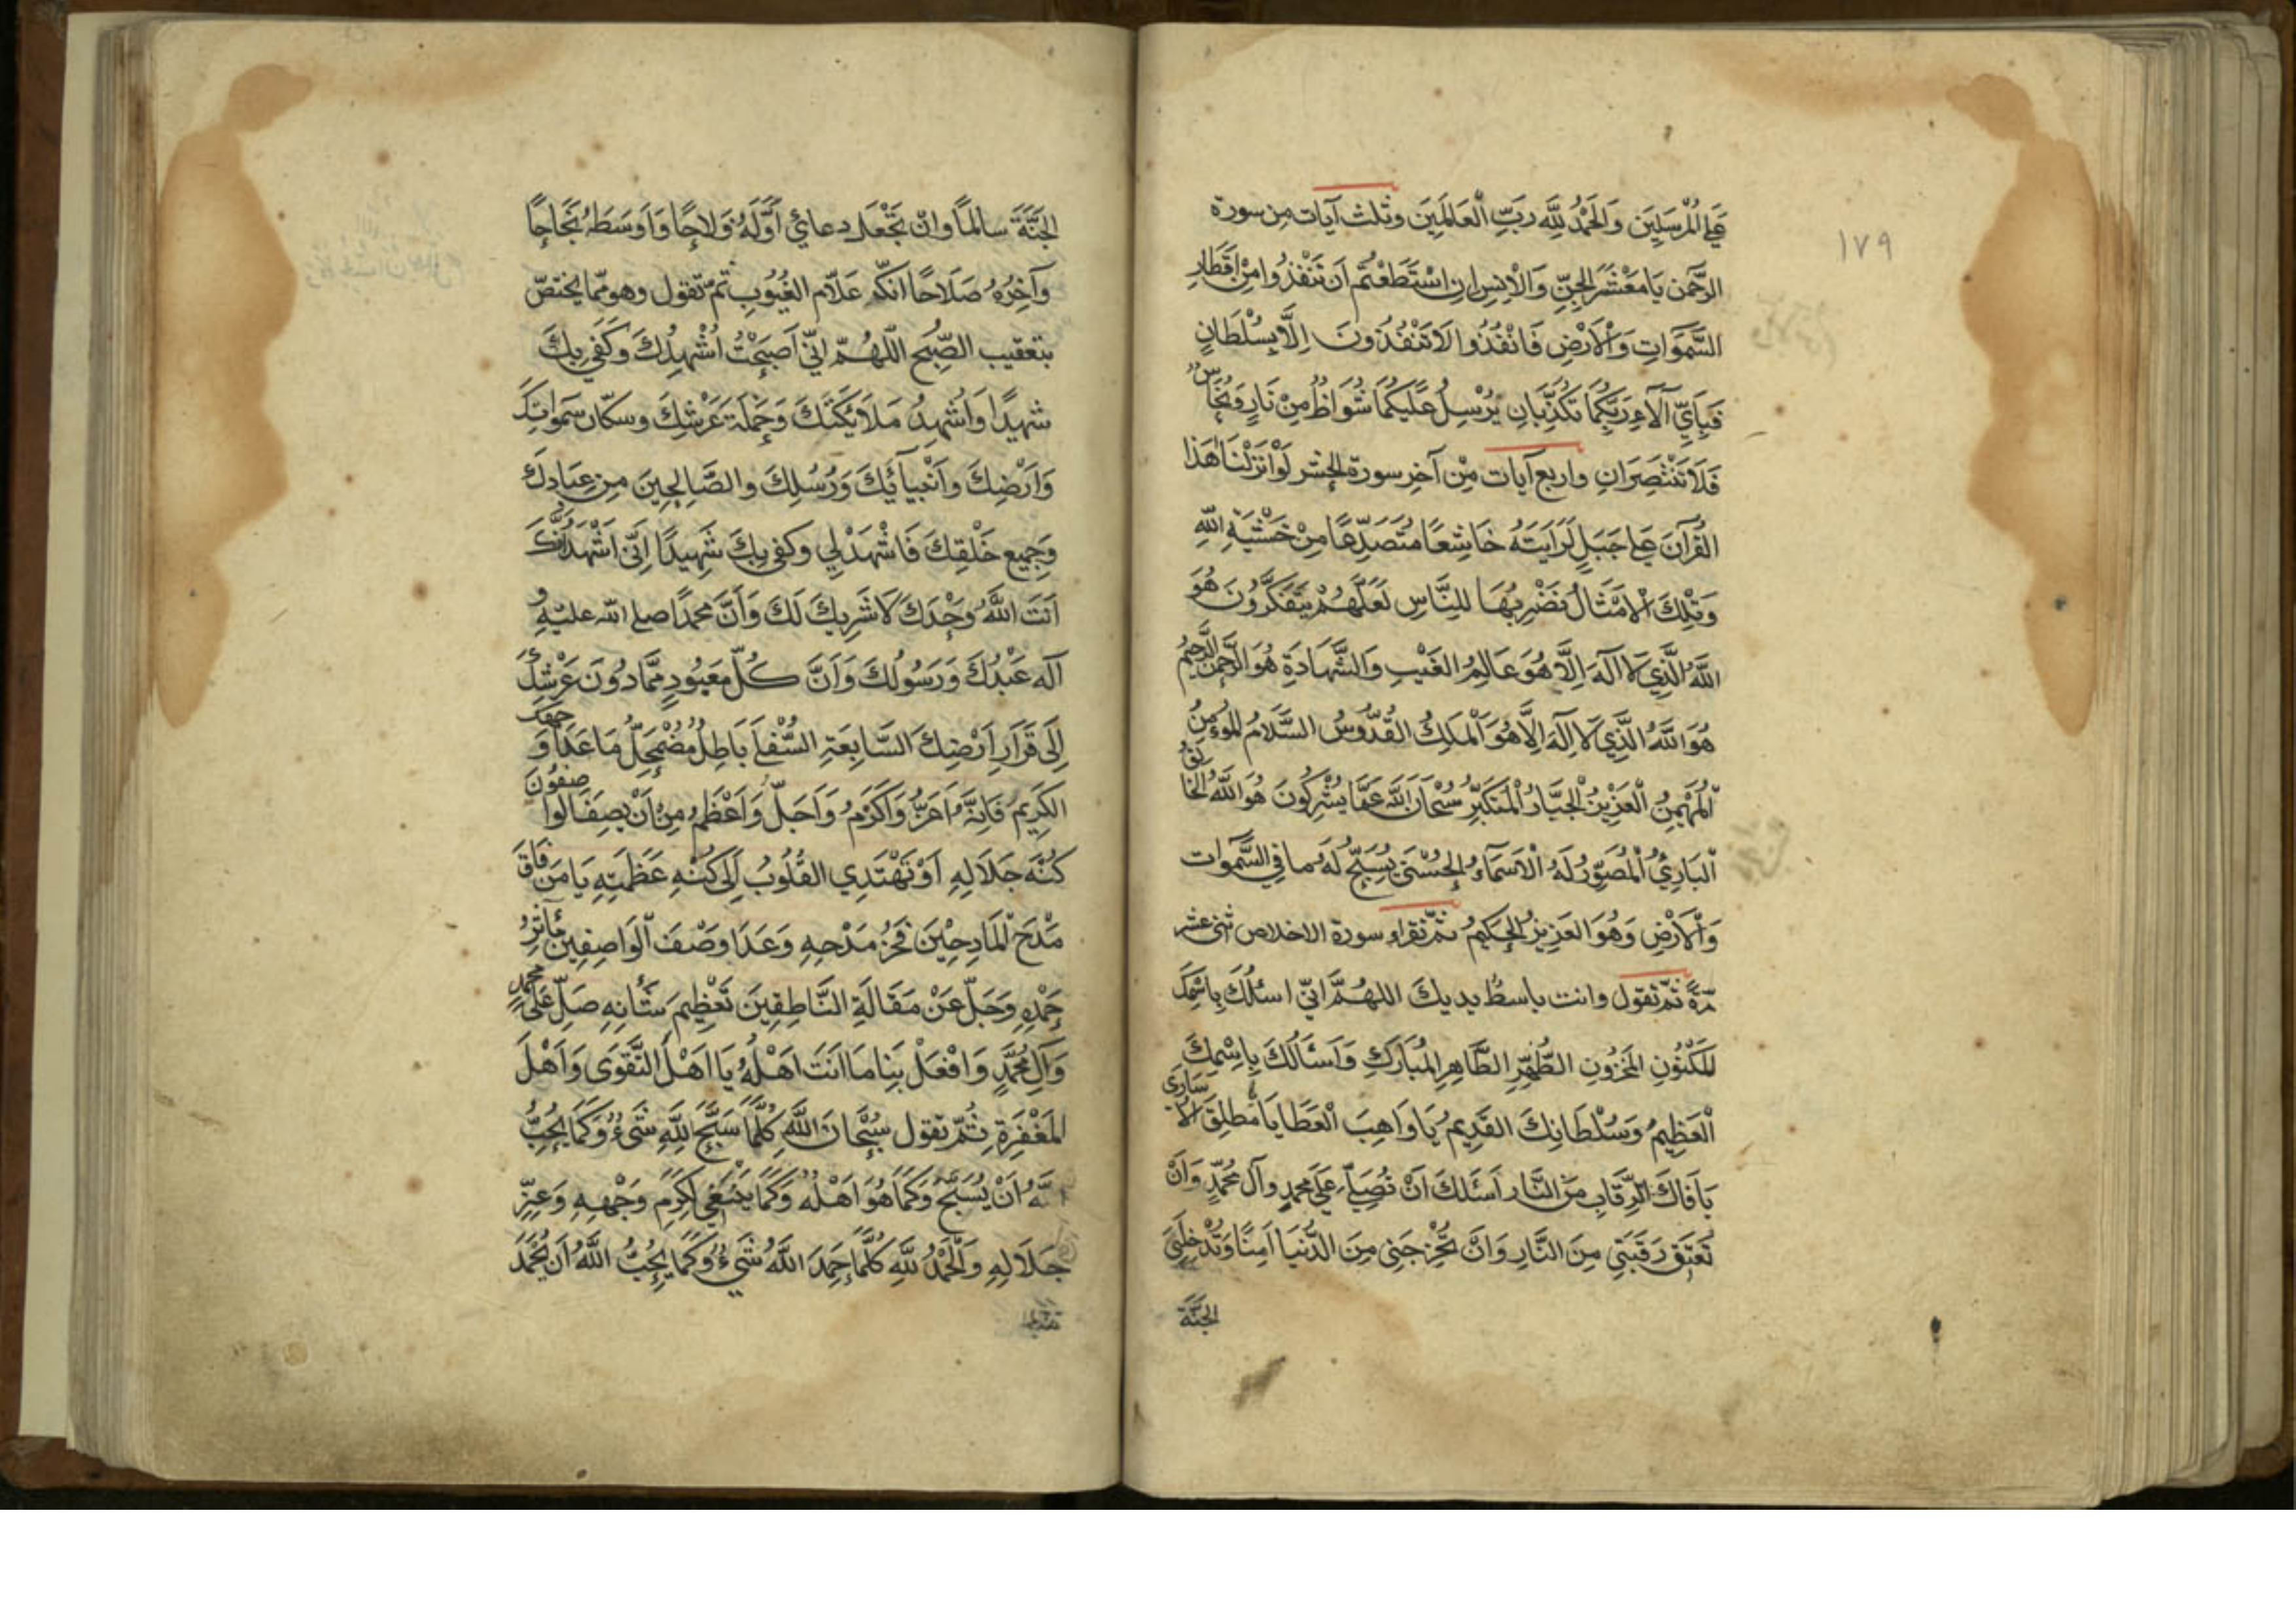 ١٧٩
عَلَى الْمُرْسَلِينَ وَالْحَمْدُ لِلَّهِ رَبِّ الْعَالَمِينَ وثلث آيات من سورة
الرَّحْمن يَا مَعْشَرَ الْجِنِّ وَالْاِنْسِ اِنِ اسْتَطَعْتُمْ اَنْ تَنْفُذُوا مِنْ اَقْطَارِ
السَّمَوَاتِ وَالْاَرْضِ فَانْفُذُوا لَا تَنْفُذُونَ اِلَّا بِسُلْطَانٍ
فَبِاَيِّ آلَآءِ رَبِّكُمَا تُكَذِّبَانِ يُرْسَلُ عَلَيْكُمَا شُوَاظٌ مِنْ نَارٍ وَنُحَاسٌ
فَلَا تَنْتَصِرَانِ واربع آيات مِنْ آخِرِ سورة الحشر لَوْ اَنْزَلْنَا هَذَا
الْقُرْآنَ عَلَى جَبَلٍ لَرَاَيْتَهُ خَاشِعًا مُتَصَدِّعًا مِنْ خَشْيَةِ اللّهِ
وَتِلْكَ الْاَمْثَالُ نَضْرِبُهَا لِلنَّاسِ لَعَلَّهُمْ يَتَفَكَّرُونَ هُوَ
اللَّهُ الَّذِي لَا اِلَهَ اِلَّا هُوَ عَالِمُ الْغَيْبِ وَالشَّهَادَةِ هُوَ الرَّحْمنُ الرَّحِيمُ
هُوَ اللَّهُ الَّذِي لَا اِلَهَ اِلَّا هُوَ الْمَلِكُ الْقُدُّوسُ السَّلَامُ الْمُؤْمِنُ
الْمُهَيْمِنُ الْعَزِيزُ الْجَبَّارُ الْمُتَكَبِّرُ سُبْحَانَ اللَّهِ عَمَّا يُشْرِكُونَ هُوَ اللَّهُ الْخَالِقُ
الْبَارِئُ الْمُصَوِّرُ لَهُ الْاَسْمَآءُ الْحُسْنَى يُسَبِّحُ لَهُ مَا فِي السَّمَوات
وَالْاَرْضِ وَهُوَ الْعَزِيزُ الْحَكِيمُ ثمّ تقراء سورة الاخلاص اثنى عشر
مرّةً ثمّ تقول وانت باسطٌ يديك اللهُمَّ انّي اسئلُكَ بِاسْمِكَ
الْمَكْنُونِ الْمَخْزُونِ الطُّهْرِ الطَّاهِرِ الْمُبَارَكِ وَاَسْئَالُكَ بِاسْمِكَ
الْعَظِيمِ وَسُلْطَانِكَ الْقَدِيمِ يَا وَاهِبَ الْعَطَايَا يَا مُطلِقَ الْاُسَارَى
يَا فَاكَّ الرِّقَابِ مِنَ النَّارِ اَسْئَلُكَ اَنْ تُصَلِّيَ عَلَى مُحَمَّدٍ وآلِ مُحَمَّدٍ وَاَنْ
تُعْتِقَ رَقَبَتِي مِنَ النَّارِ وَاَنْ تُخْرِجَنِي مِنَ الدُّنْيَا آمِنًا وَتُدْخِلَنِي
الجَنَّةَ
الجَنَّةَ سالماً وان تَجْعَلَ دعائي اَوَّلَهُ فَلاحًا وَاَوْسَطَهُ نَجَاحًا
وَآخِرَهُ صَلَاحًا انّكَ عَلَّام الْغُيُوبِ ثمّ تقول وهو ممّا يختصّ
بتعقيب الصُّبح اللّهُمّ انّي اَصْبَحْتُ اُشْهِدُكَ وَكَفَى بِكَ
شهيدًا وَاُشْهِدُ مَلَائِكَتَكَ وَحَمَلَةَ عَرْشِكَ وسكّان سَمَواتِكَ
وَاَرْضِكَ وَاَنْبِيآئِكَ وَرُسُلِكَ والصَّالِحِينَ مِنْ عِبَادِكَ
وَجَمِيعِ خَلْقِكَ فَاشْهَدْ لِي وكفى بِكَ شَهِيدًا اِنّي اَشْهَدُ اَنَّكَ
اَنْتَ اللَّهُ وَحْدَكَ لَا شَرِيكَ لَكَ وَاَنَّ مُحَمّدًا صلى الله عليه و
آله عَبْدُكَ وَرَسُولُكَ وَاَنَّ كُلَّ مَعْبُودٍ مِمَّا دُونَ عَرْشِكَ
اِلَى قَرَارِ اَرْضِكَ السَّابِعَةِ السُّفْلَى بَاطِلٌ مُضْمَحِلٌّ مَا عَدَا وَجْهَكَ
الكَرِيمَ فَاِنَّهُ اَعَزُّ وَاَكْرَمُ وَاَجَلُّ وَاَعْظَمُ مِنْ اَنْ يَصِفَ الْوَاصِفُونَ
كُنْهَ جَلَالِهِ اَوْ تَهْتَدِي الْقُلُوبُ اِلَى كُنْهِ عَظَمَتِهِ يَا مَنْ فَاقَ
مَدْحَ الْمَادِحِينَ فَخْرُ مَدْحِهِ وَعَدَا وَصْفَ الْوَاصِفِينَ مَآثِرُ
حَمْدِهِ وَجَلَّ عَنْ مَقَالَةِ النَّاطِقِينَ تَعْظِيمُ شَأْنِهِ صَلِّ عَلَى مُحَمَّدٍ
وَآلِ مُحَمَّدٍ وَافْعَلْ بِنَا مَا اَنْتَ اَهْلُهُ يَا اَهْلَ التَّقْوَى وَاَهْلَ
المَغْفِرَةِ ثُمّ تقول سُبْحَانَ اللَّهِ كُلَّمَا سَبَّحَ لِلَّهِ شَيْءٌ وَكَمَا يُحِبُّ
اللَّهُ اَنْ يُسَبَّحَ وَكَمَا هُوَ اَهْلُهُ وَكَمَا يَنْبَغِي لِكَرَمِ وَجْهِهِ وَعِزِّ
جَلَالِهِ وَالْحَمْدُ لِلَّهِ كُلَّمَا حَمِدَ اللَّهَ شَيْءٌ وَكَمَا يُحِبُّ اللَّهُ اَنْ يُحْمَدَ